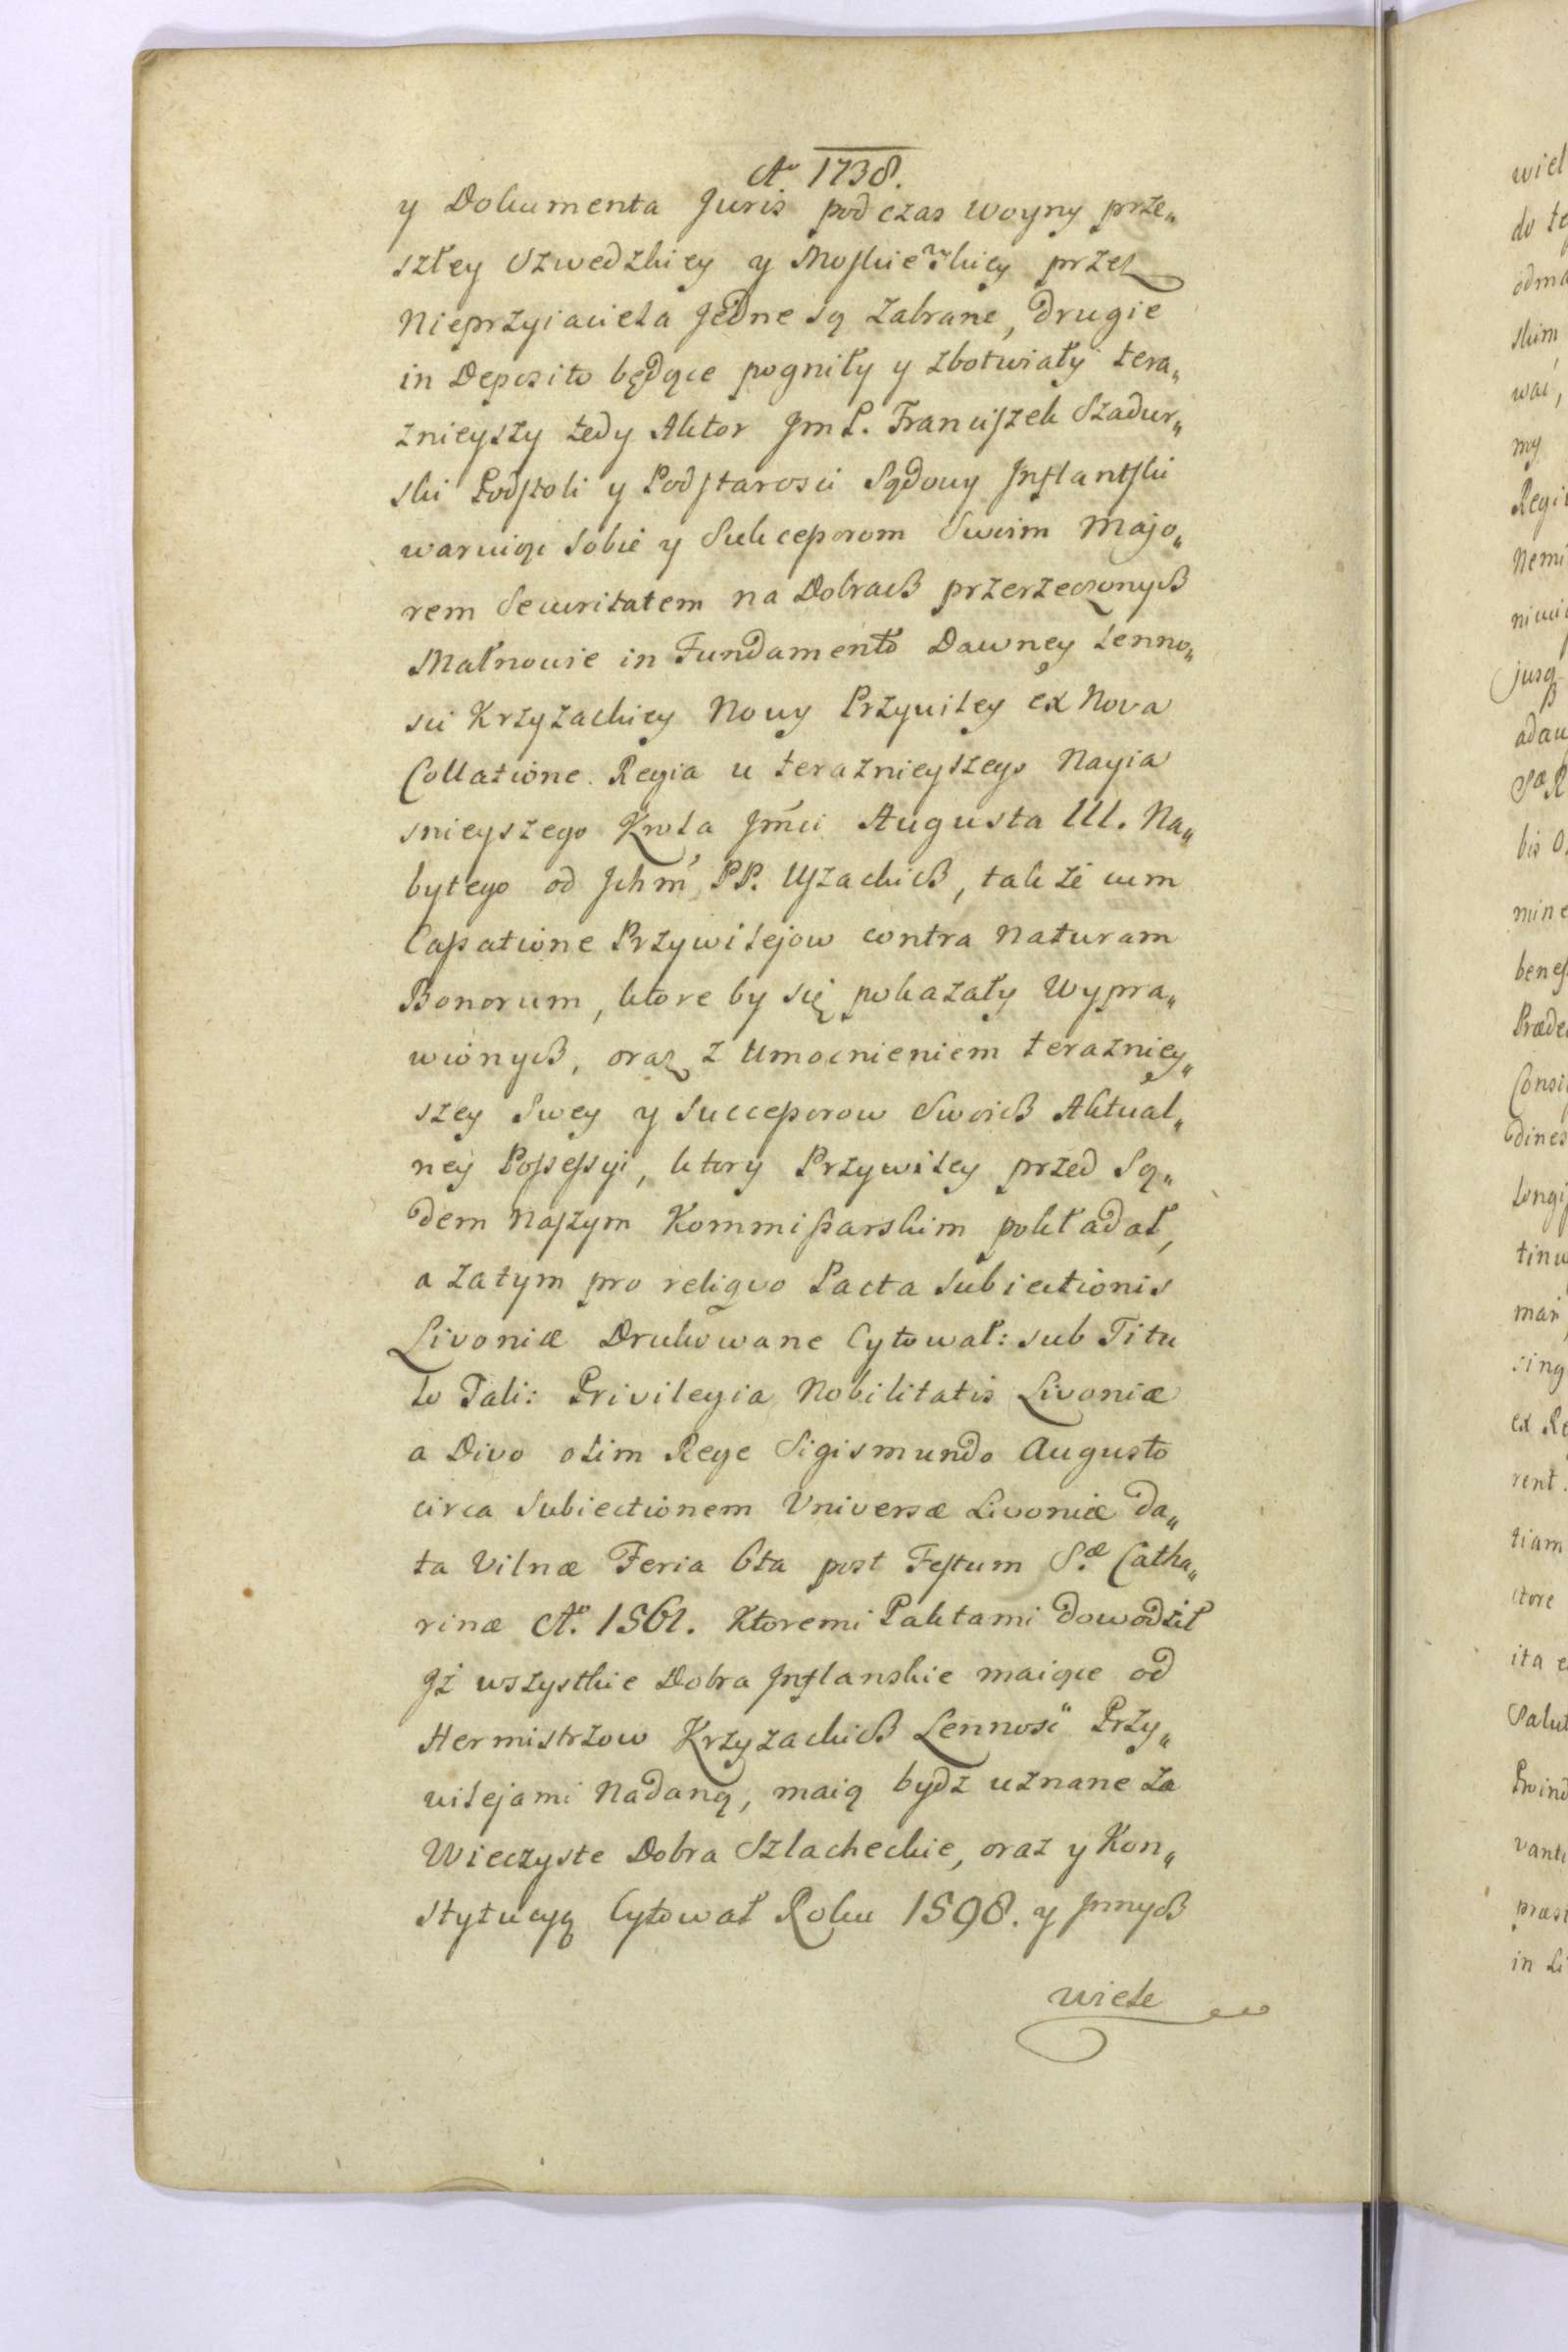 Aº 1738.
y Dokumenta Juris podczas Woyny prze„
szłey Szwedzkiey y Moskiewskiey przez
Nieprzyiaciela Jedne są zabrane, drugie
in Deposito będące pogniły y zbotwiały tera„
znieyszy tedy Aktor Jm P. Franciszek Szadur„
ski Podstoli y Podstarosci Sądowy Inflantski
waruiąc sobie y Sukcessorom Swoim Majo„
rem Securitatem na Dobrach przerzeczonych
Małnowie in Fundamento Dawney Lenno„
sci Krzyzackiey Nowy Przywiley ex Nova
Collatione Regia u teraznieyszego Nayia
snieyszego Krola Jmci Augusta III. Na„
bytego od Jchm PP. Uszackich, także cum
Cassatione Przywilejow contra Naturam
Bonorum, ktore by się pokazały Wypra„
wionych, oraz z Umocnieniem terazniey„
szey Swey y Successorow Swoich Aktual„
ney Possessyi, ktory Przywiley przed Są„
dem Naszym Kommissarskim pokładał,
a zatym pro reliquo Pacta Subiectionis
Livoniæ Drukowane Cytował: sub Titu
lo Tali: Privilegia Nobilitatis Livoniæ
a Divo olim Rege Sigismundo Augusto
circa Subiectionem Universæ Livoniæ da„
ta Vilnæ Feria 6ta post Festum S.æ Catha„
rinæ Aº. 1561. Ktoremi Paktami dowodził
Jż wszystkie Dobra Inflanskie maiące od
Hermistrzow Krzyzackich Lennosć Przy„
wilejami Nadaną, maią bydz uznane za
Wieczyste Dobra Szlacheckie, oraz y Kon„
stytucyą Cytował Roku 1598. y Jnnych
wiele